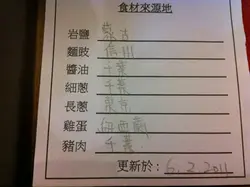 食材來源地
岩鹽 蒙古
麵豉 信州
醬油 千葉
細蔥 千葉
長蔥 東京
雞蛋
豬肉 千葉
更新於：6.2.2011